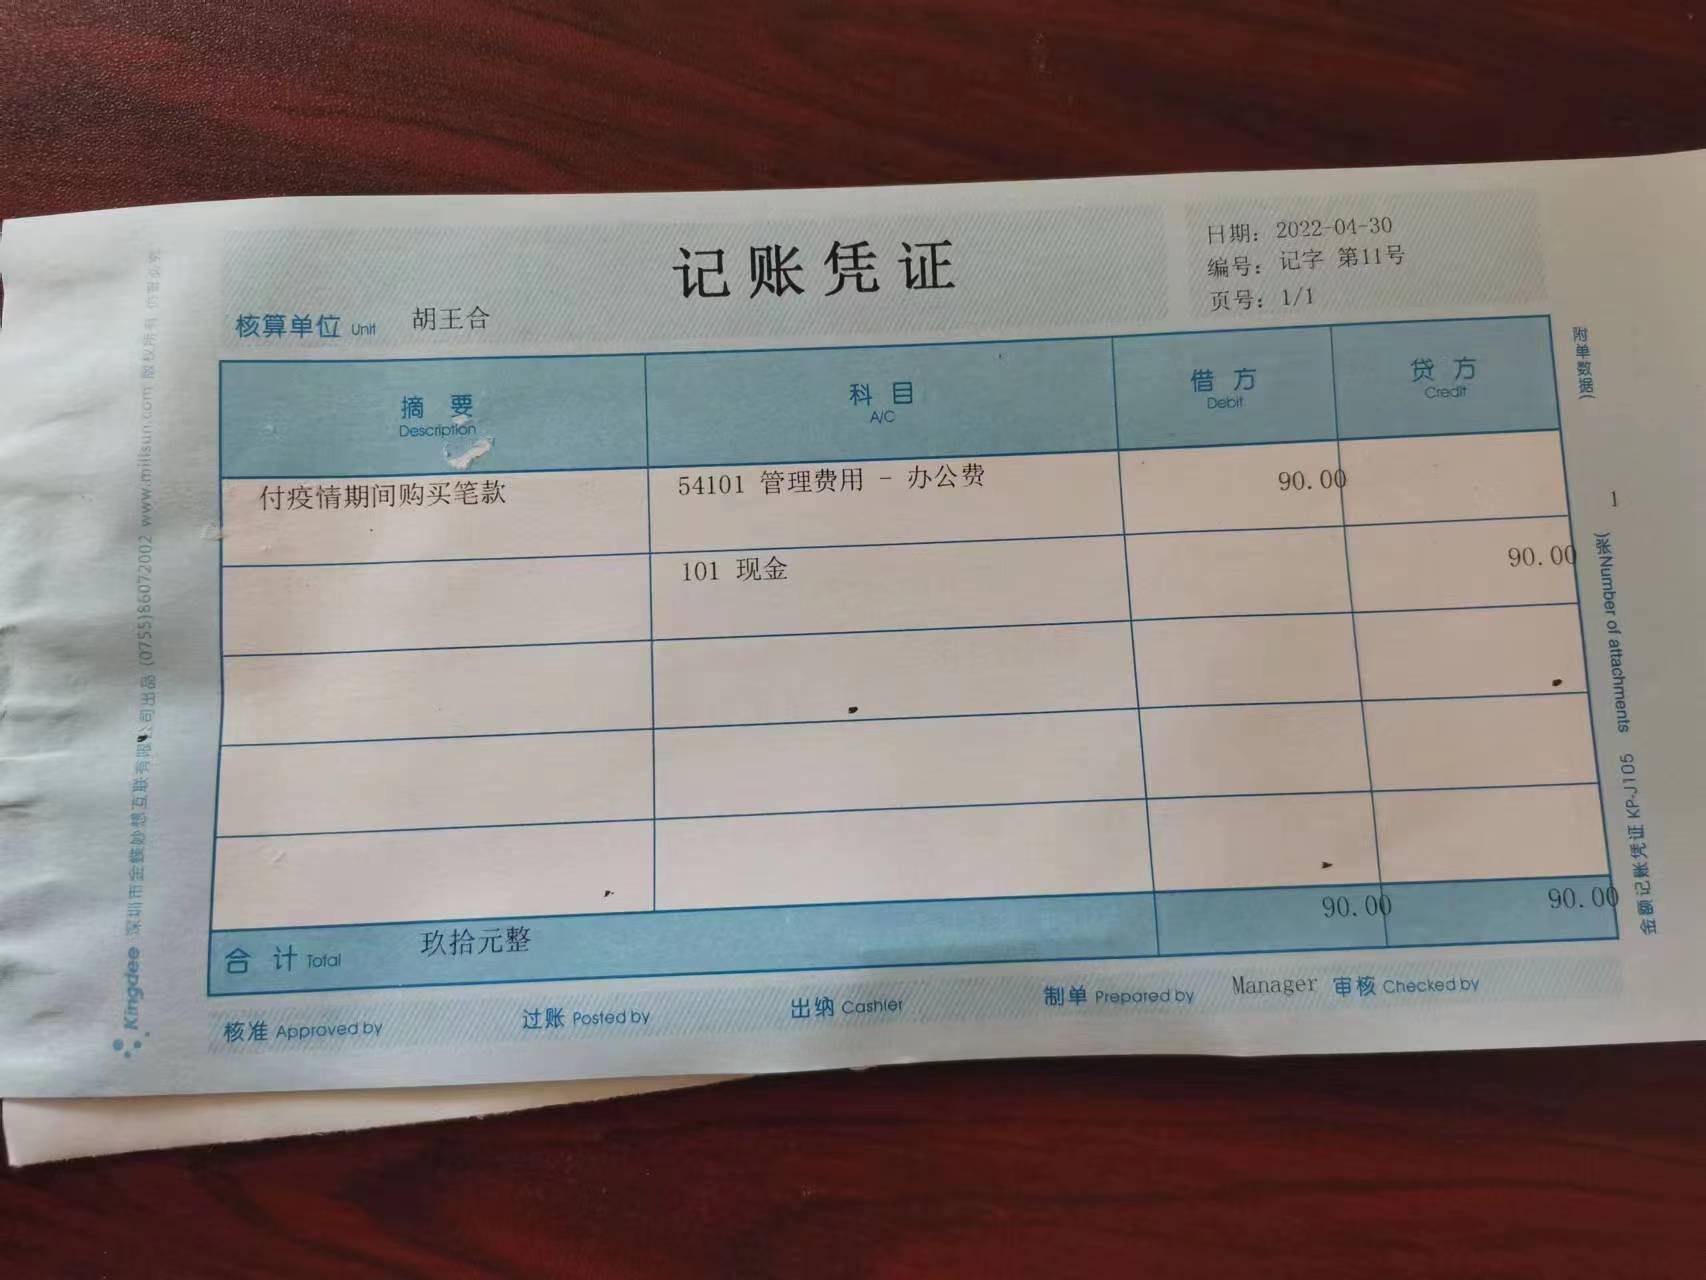 记账凭证
日期：2022-04-30
编号：记字 第11号
页号：1/1
核算单位 Unit 胡王合
摘 要 科 目 借 方 贷 方
Description A/C Debit Credit
付疫情期间购买笔款 54101 管理费用 - 办公费 90.00
101 现金 90.00
合 计 Total 玖拾元整 90.00 90.00
核准 Approved by 过账 Posted by 出纳 Cashier 制单 Prepared by Manager 审核 Checked by
附单数据( 1 张)Number of attachments 金额记账凭证 KP-J105
Kingdee 深圳市金蝶妙想互联有限公司出品 (0755)86072002 www.millsun.com 版权所有 仿冒必究